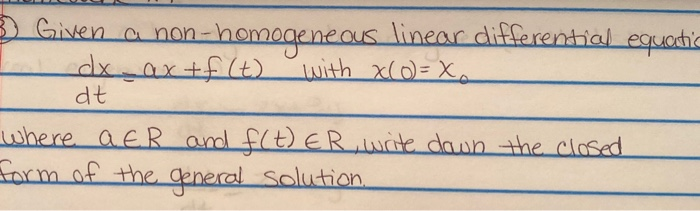 3) Given a non-homogeneous linear differential equatio
dx = ax + f(t) with x(0) = X₀
dt
where a ∈ R and f(t) ∈ R, write down the closed
form of the general solution.